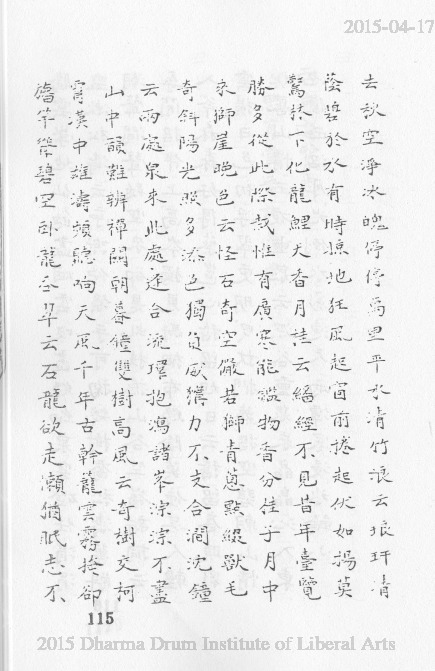 2015-04-17
去秋空淨冰魄停停萬里平水清竹浪云琅玕清
蔭碧於水有時掠地狂風起窗前捲起伏如揚莫
驚林下化龍鯉天香月桂云緇經不見昔年臺覽
勝多從此際哉惟有廣寒能鑑物香分桂子月中
來獅崖晚色云怪石奇空儼若獅青蔥點綴獸毛
奇斜陽光照多添色獨負威獰力不支合澗沈鐘
云兩凝泉來此處逢合流環抱瀉諸峯淙淙不盡
山中韻難辨禪關朝暮鐘雙樹高風云奇樹交柯
霄漢中雄濤頻聽响天風千年古幹籠雲霧捨卻
簷竿聳碧空臥龍丕單云石龍欲走瀨猶眠志不
115
2015 Dharma Drum Institute of Liberal Arts